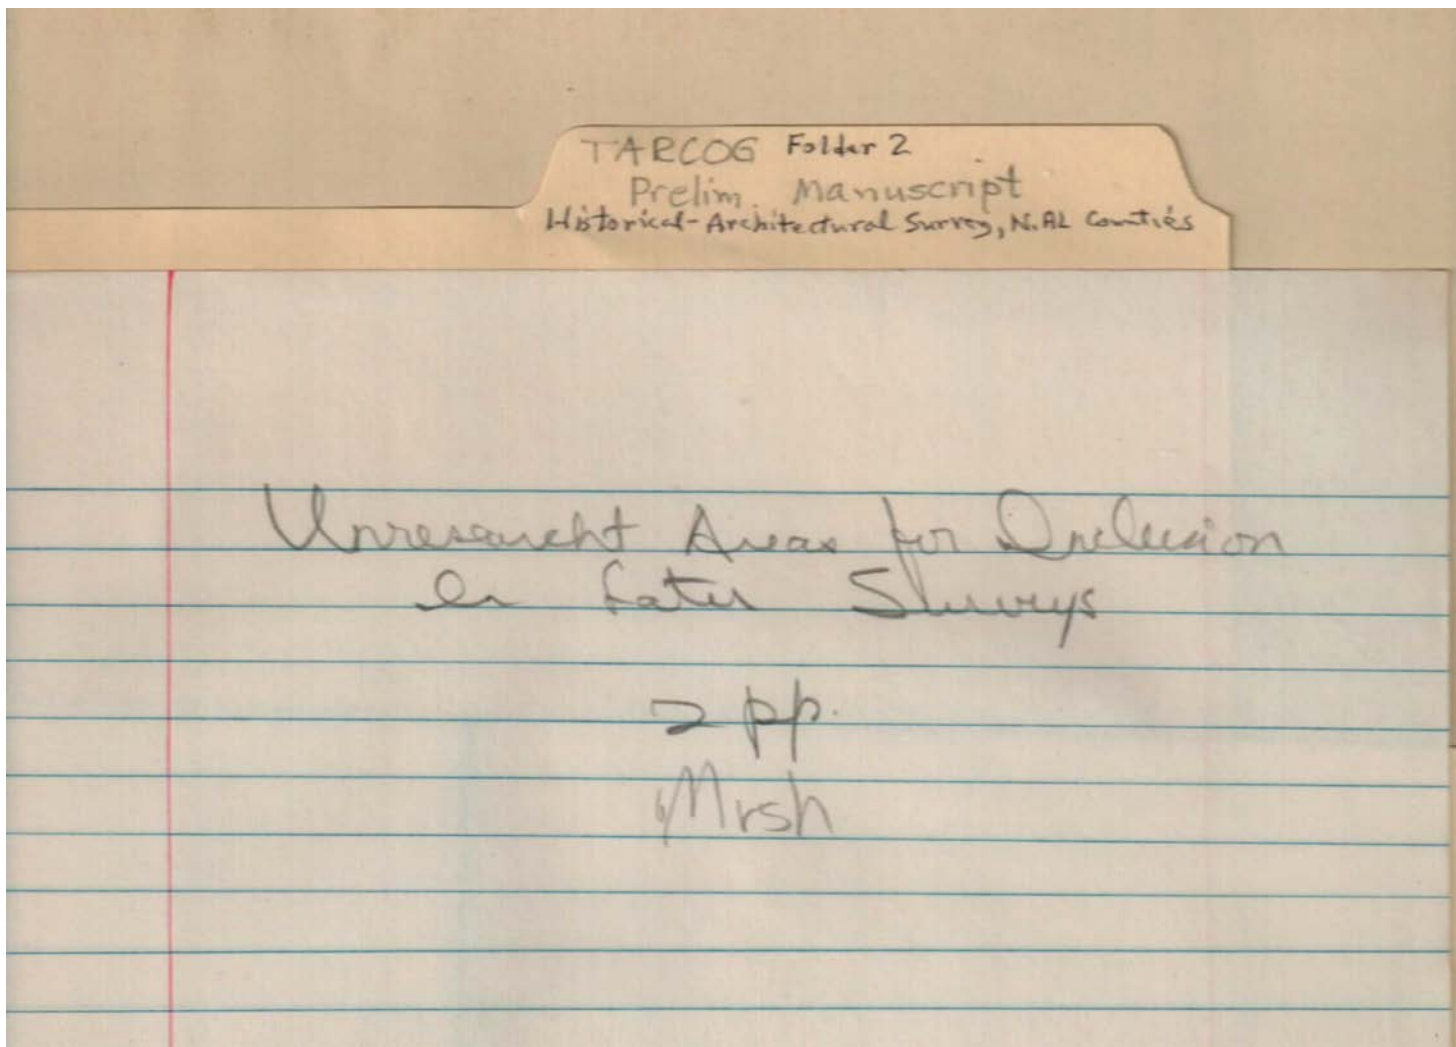 TARCOG Folder 2
Prelim. Manuscript
Historical-Architectural Survey, N. AL Counties
Unresearcht Areas for Inclusion
in Later Surveys
2 pp.
Mrsh